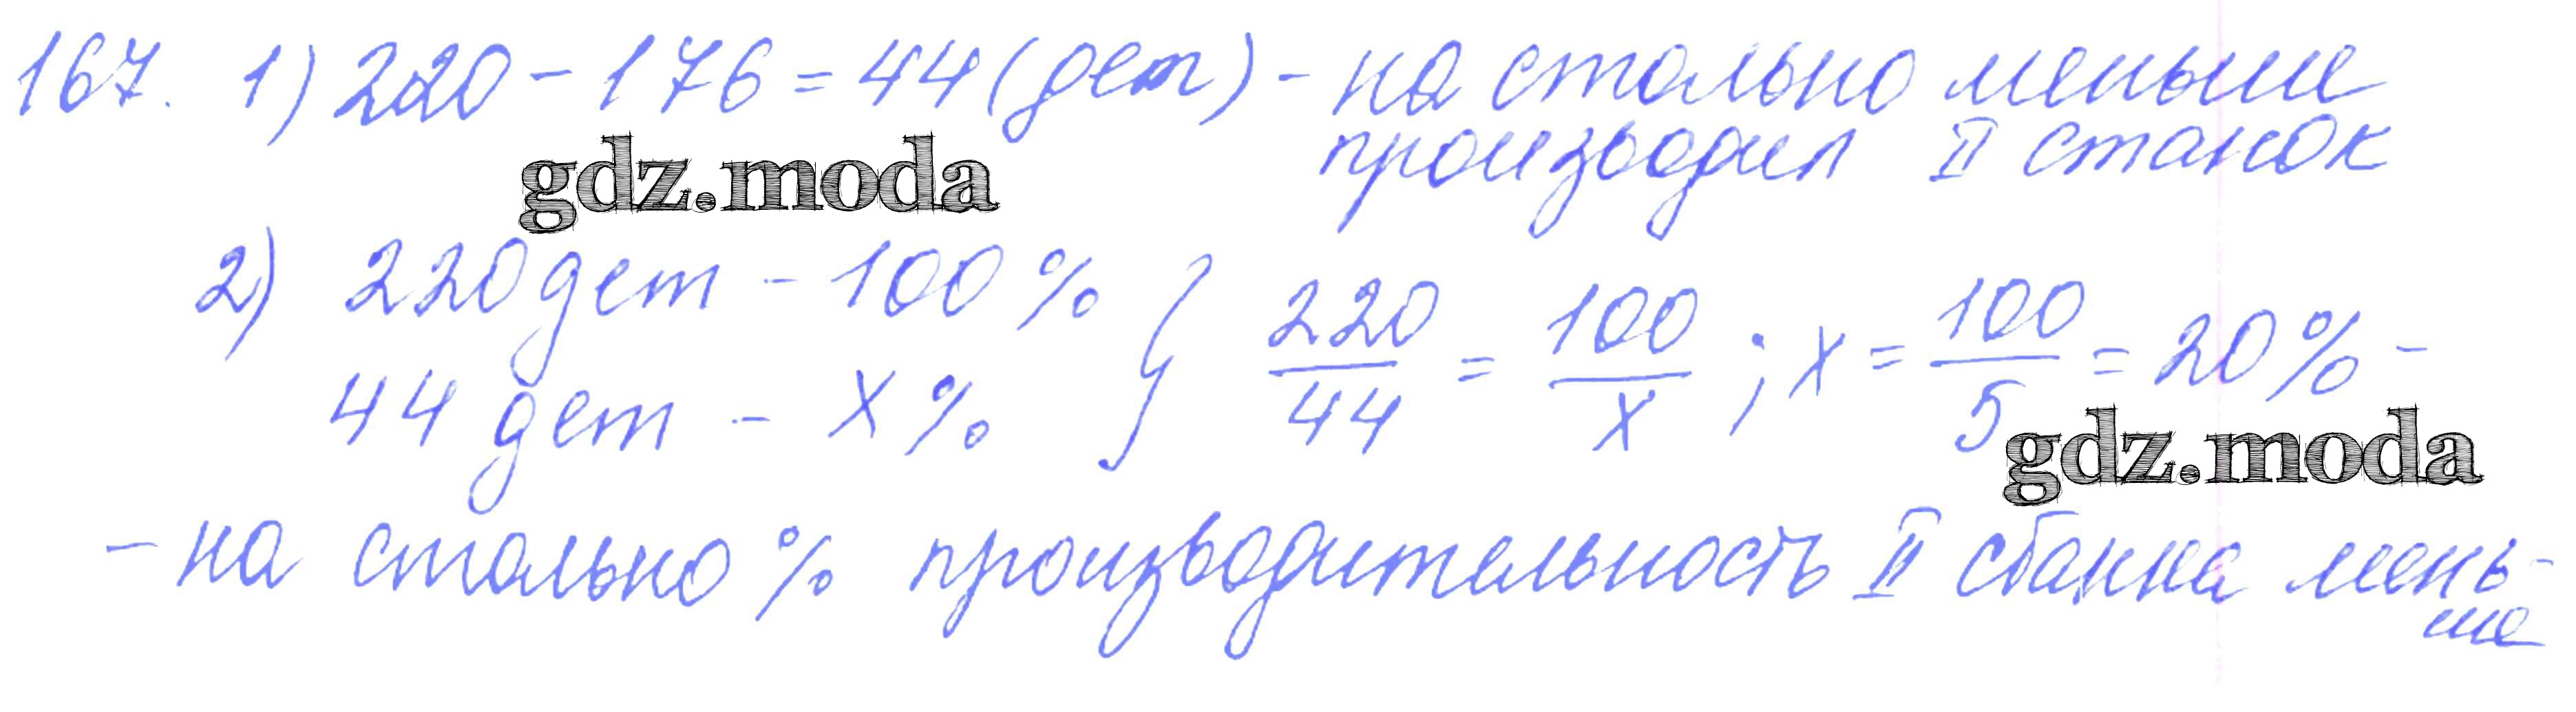 167. 1) 220 - 176 = 44 (дет) - на столько меньше
производил II станок
gdz.moda
2) 220 дет - 100 %
44 дет - x % } 220/44 = 100/x ; x = 100/5 = 20 % -
gdz.moda
- на столько % производительность II станка мень-
ше